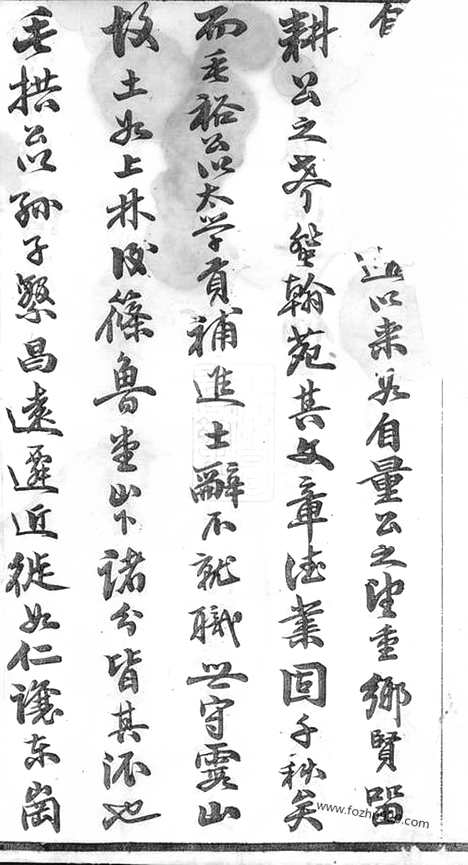 以来自量公之望重鄉賢
耕公之登翰苑其文章德業固千秋矣
而垂裕公以太学貢補進士辭不就職世守霞山
故土如上林陂篠魯堂山下諸分皆其派也
垂拱公以孙子繁昌遠遷近徙如仁讓东崗